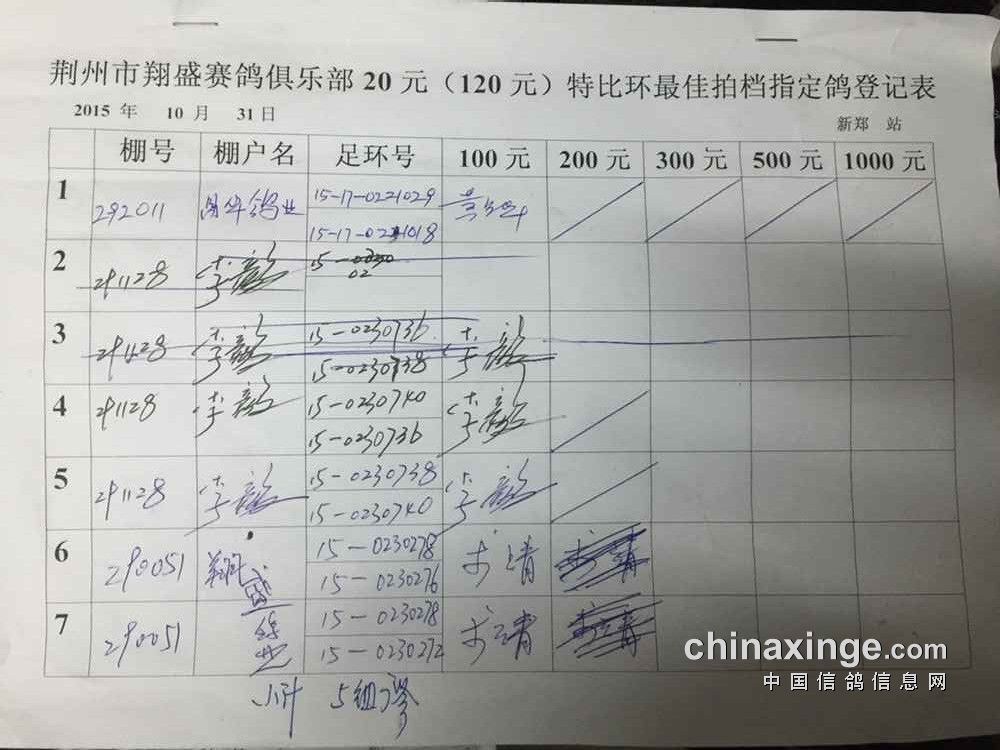 荆州市翔盛赛鸽俱乐部20元（120元）特比环最佳拍档指定鸽登记表
2015 年 10 月 31日
新郑 站
棚号 棚户名 足环号 100元 200元 300元 500元 1000元
1 292011 鸽业 15-17-0221029
15-17-0221018
2 291128 李 15-0230
02
3 291128 李 15-0230736 李
15-0230738
4 291128 李 15-0230740 李
15-0230736
5 291128 李 15-0230738 李
15-0230740
6 290051 翔盛 15-0230278 李靖 李靖
15-0230276
7 290051 15-0230278 李靖 李靖
15-0230272
小计 5组
chinaxinge.com
中国信鸽信息网